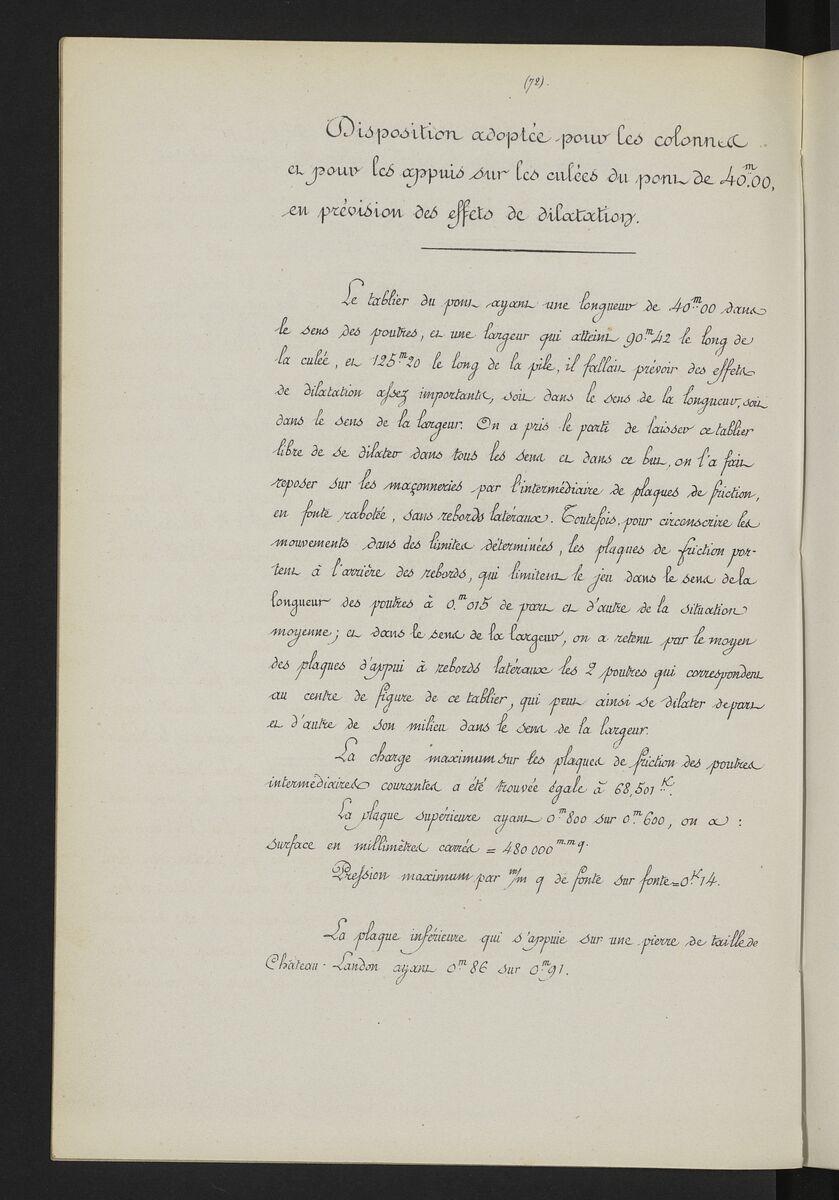 (72).
Disposition adoptée pour les colonnes
et pour les appuis sur les culées du pont de 40m.00,
en prévision des effets de dilatation.
Le tablier du pont ayant une longueur de 40m00 dans
le sens des poutres, et une largeur qui atteint 90m42 le long de
la culée, et 125m20 le long de la pile, il fallait prévoir des effets
de dilatation assez importants, soit dans le sens de la longueur, soit
dans le sens de la largeur. On a pris le parti de laisser ce tablier
libre de se dilater dans tous les sens et dans ce but, on l'a fait
reposer sur les maçonneries par l'intermédiaire de plaques de friction,
en fonte rabotée, sans rebords latéraux. Toutefois, pour circonscrire les
mouvements dans des limites déterminées, les plaques de friction por-
tent à l'arrière des rebords, qui limitent le jeu dans le sens de la
longueur des poutres à 0.m015 de part et d'autre de la situation
moyenne; et dans le sens de la largeur, on a retenu par le moyen
des plaques d'appui à rebords latéraux les 2 poutres qui correspondent
au centre de figure de ce tablier, qui peut ainsi se dilater de part
et d'autre de son milieu dans le sens de la largeur.
La charge maximum sur les plaques de friction des poutres
intermédiaires courantes a été trouvée égale à 68,501 K.
La plaque supérieure ayant 0m800 sur 0m600, on a :
surface en millimètres carrés = 480 000 m.m.q.
Pression maximum par m/m q de fonte sur fonte = 0K14.
La plaque inférieure qui s'appuie sur une pierre de taille de
Château-Landon ayant 0m86 sur 0m91.